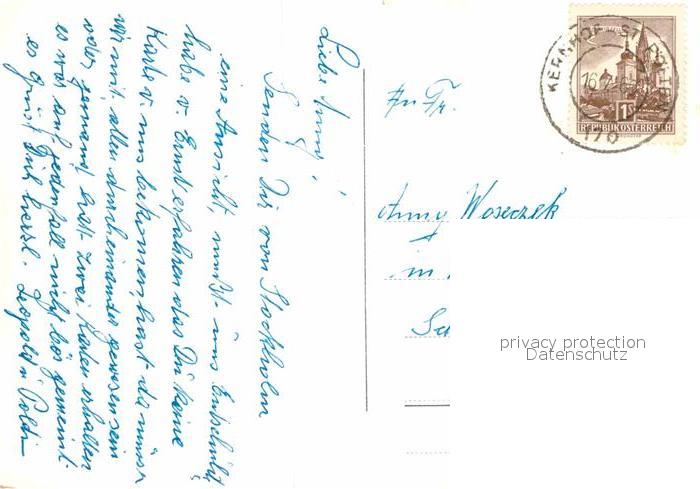 Liebe Anny!
Senden Dir von Stockholm
eine Ansicht, mußt uns Entschuld.
habe v. Ernst erfahren das Du keine
Karte v. uns bekommen hast da müssen
wir mit allen durcheinander gewesen sein
oder jemand hat zwei Karten erhalten
es war auf jedenfall nicht bös gemeint.
es grüßt Dich herzl. Leopold u. Poldi
An Fr.
Anny Woseczek
in
KERNHOF ST. PÖLTEN
170
1S
REPUBLIK ÖSTERREICH
privacy protection
Datenschutz